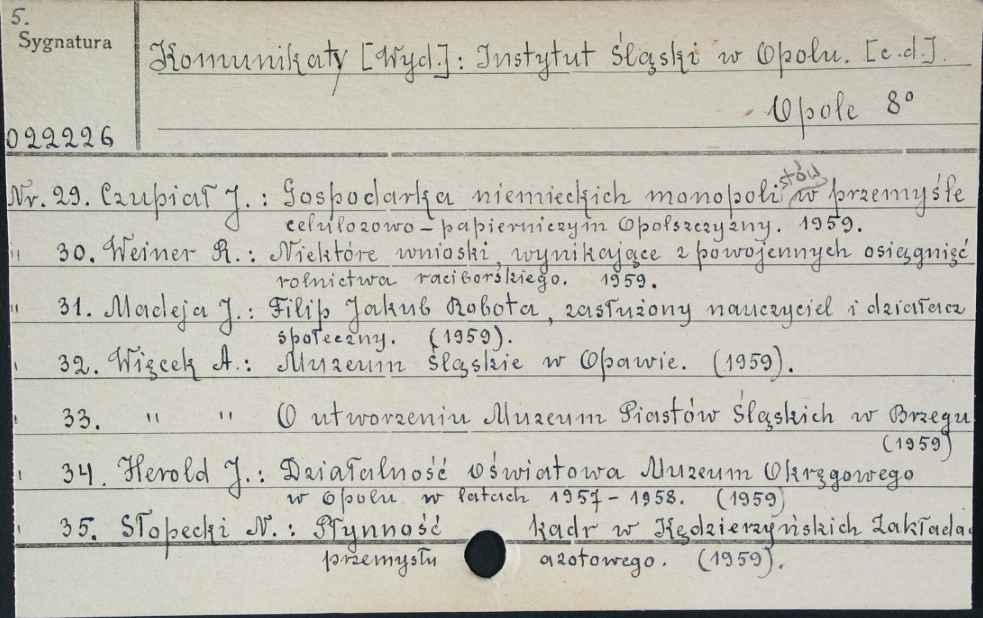 5.
Sygnatura
Komunikaty [Wyd.]: Instytut Śląski w Opolu. [c.d.].
Opole 8°
022226
Nr. 29. Czupiał J.: Gospodarka niemieckich monopolistów w przemyśle
celulozowo-papierniczym Opolszczyzny. 1959.
" 30. Weiner R.: Niektóre wnioski, wynikające z powojennych osięgnięć
rolnictwa raciborskiego. 1959.
" 31. Madeja J.: Filip Jakub Robota, zasłużony nauczyciel i działacz
społeczny. (1959).
' 32. Więcek A.: Muzeum Śląskie w Opawie. (1959).
' 33. " " O utworzeniu Muzeum Piastów Śląskich w Brzegu
(1959)
' 34. Herold J.: Działalność oświatowa Muzeum Okręgowego
w Opolu w latach 1957-1958. (1959)
' 35. Słopecki N.: Płynność kadr w Kędzierzyńskich Zakłada
przemysłu azotowego. (1959).